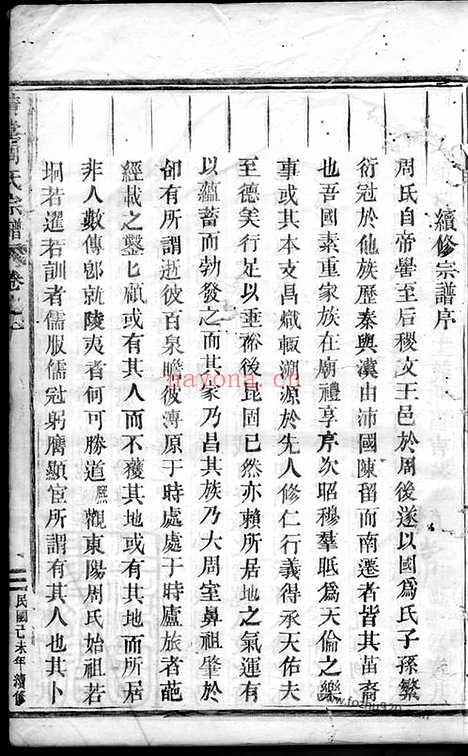 續修宗譜序
周氏自帝嚳至后稷文王邑於周後遂以國爲氏子孫繁
衍冠於他族歷秦與漢由沛國陳留而南遷者皆其苗裔
也吾國素重家族在廟禮享序次昭穆羣眡爲天倫之樂
事或其本支昌熾輙溯源於先人修仁行義得承天佑夫
至德美行足以垂裕後昆固已然亦賴所居地之氣運有
以蘊蓄而勃發之而其家乃昌其族乃大周室鼻祖肇於
卻有所謂逝彼百泉瞻彼溥原于時處處于時廬旅者葩
經載之鑿匕顧或有其人而不獲其地或有其地而所居
非人數傳郎就陵夷者何可勝道熙觀東陽周氏始祖若
垌若暹若訓者儒服儒冠躬膺顯宦所謂有其人也其卜
周氏宗譜 卷之
民國己未年續修
nayona.cn
www.fozhu920.com